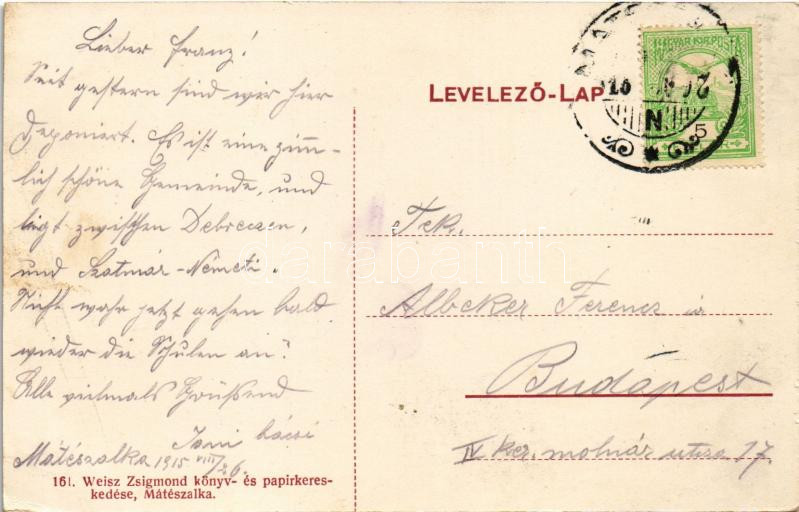 Lieber Franz!
Seit gestern sind wir hier
deponiert. Es ist eine ziem-
lich schöne Gemeinde, und
liegt zwischen Debreczen,
und Szatmár-Németi.
Nicht wahr jetzt gehen bald
wieder die Schulen an?
Alle vielmals Grüssend
Jani bácsi
Mátészalka 1915 VIII/26.
161. Weisz Zsigmond könyv- és papirkeres-
kedése, Mátészalka.
LEVELEZŐ-LAP
MAGYAR KIR. POSTA
5
N
Tek.
Albeker Ferencz úr
Budapest
IV ker. molnár utcza 17.
darabanth